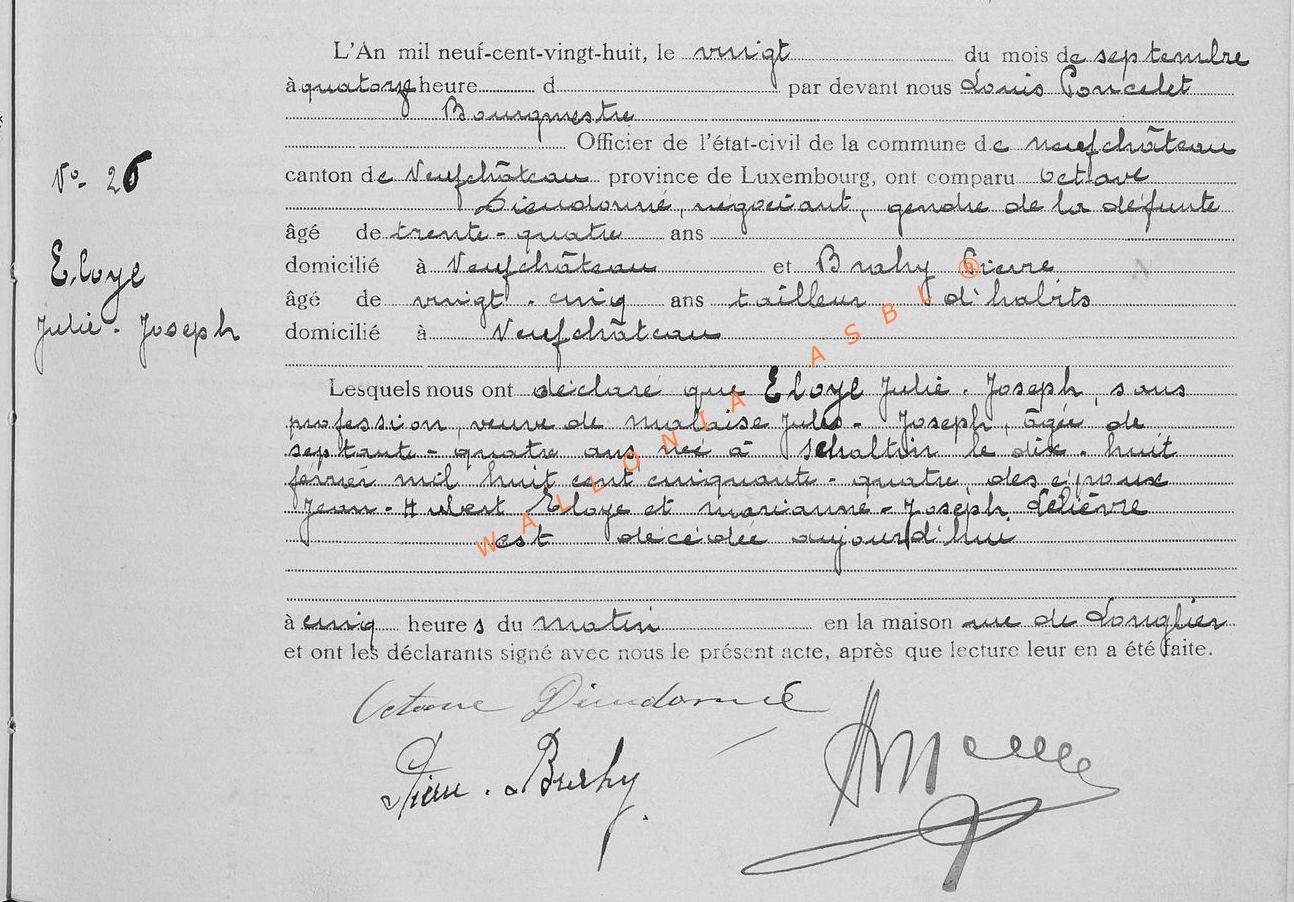 L'An mil neuf-cent-vingt-huit, le vingt du mois de septembre
à quatorze heure d par devant nous Louis Poncelet
Bourgmestre
Officier de l'état-civil de la commune de Neufchâteau
N° 26
canton de Neufchâteau province de Luxembourg, ont comparu Octave
Dieudonné, négociant, gendre de la défunte
âgé de trente-quatre ans
Eloye
Julie-Joseph
domicilié à Neufchâteau et Brahy Pierre
âgé de vingt-cinq ans tailleur d'habits
domicilié à Neufchâteau
Lesquels nous ont déclaré que Eloye Julie-Joseph, sans
profession, veuve de Malaise Jules-Joseph, âgée de
septante-quatre ans née à Schaltin le dix-huit
février mil huit cent cinquante-quatre, des époux
Jean-Hubert Eloye et Marianne-Joseph Lelièvre
est décédée aujourd'hui
à cinq heures du matin en la maison rue de Longlier
et ont les déclarants signé avec nous le présent acte, après que lecture leur en a été faite.
Octave Dieudonné
Pierre Brahy
WALLONIA ASBL ®